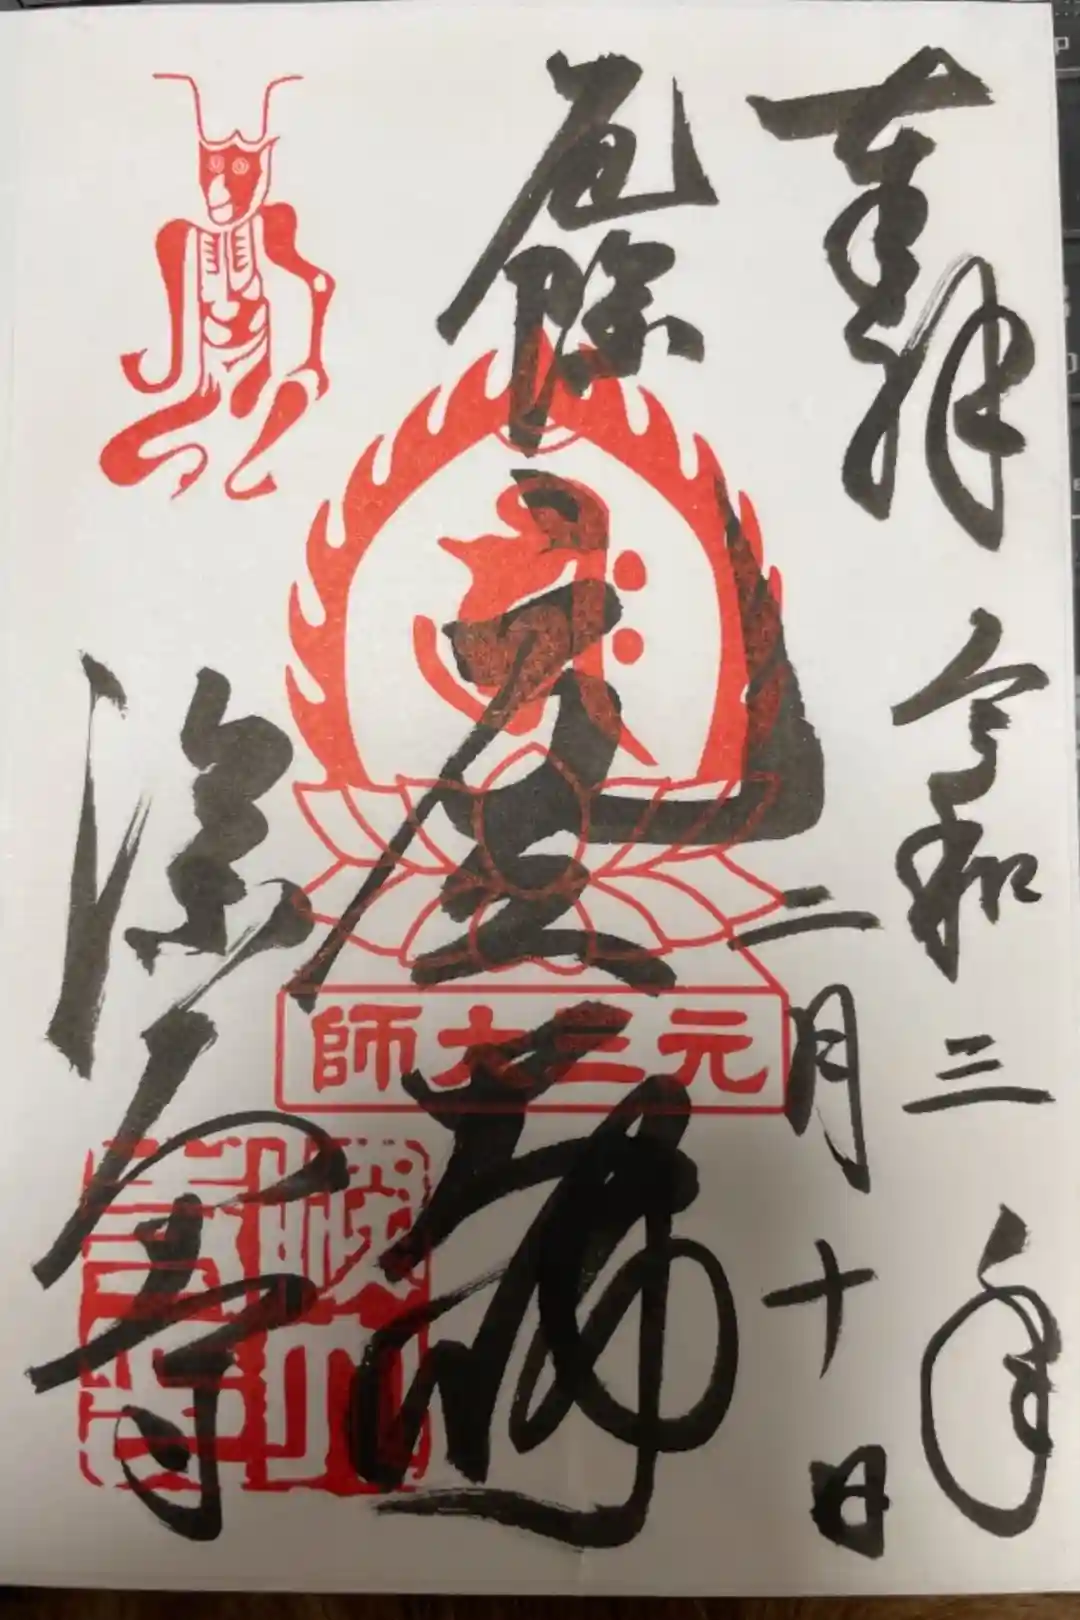 奉拝 令和三年
二月十日
厄除 元三大師
深大寺
元三大師